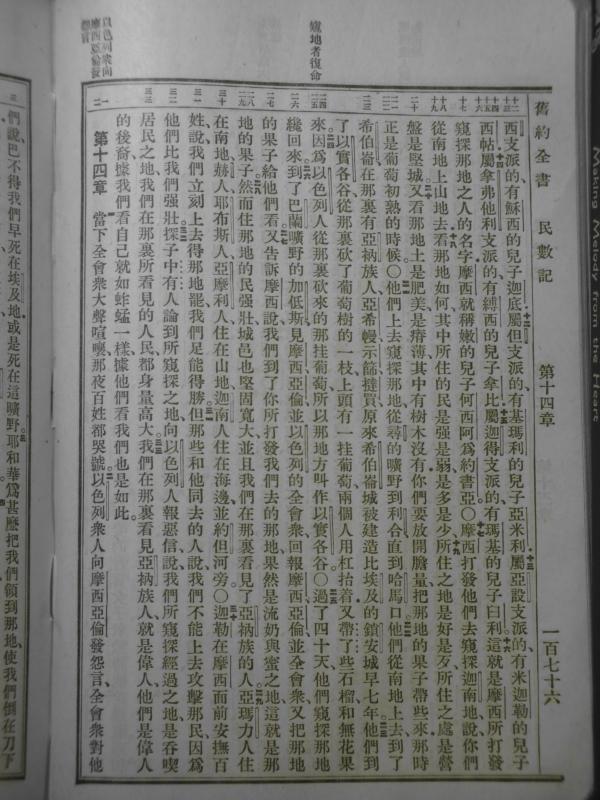 舊約全書 民數記 第十四章 一百七十六
西支派的有穌西的兒子迦底屬但支派的有基瑪利的兒子亞米利屬亞設支派的有米迦勒的兒子
西帖屬拿弗他利支派的有縛西的兒子拿比屬迦得支派的有瑪基的兒子臼利這就是摩西所打發
窺探那地之人的名字摩西就稱嫩的兒子何西阿爲約書亞〇摩西打發他們去窺探迦南地說你們
從南地上山地去看那地如何其中所住的民是強是弱是多是少所住之地是好是歹所住之處是營
盤是堅城又看那地土是肥美是瘠薄其中有樹木沒有你們要放開膽量把那地的果子帶些來那時
正是葡萄初熟的時候〇他們上去窺探那地從尋的曠野到利合直到哈馬口他們從南地上去到了
希伯崙在那裏有亞衲族人亞希幔示篩撻買原來希伯崙城被建造比埃及的鎖安城早七年他們到
了以實各谷從那裏砍了葡萄樹的一枝上頭有一挂葡萄兩個人用杠抬着又帶了些石榴和無花果
來因爲以色列人從那裏砍來的那挂葡萄所以那地方叫作以實各谷〇過了四十天他們窺探那地
纔回來到了巴蘭曠野的加低斯見摩西亞倫並以色列的全會衆回報摩西亞倫並全會衆又把那地
的果子給他們看又告訴摩西說我們到了你所打發我們去的那地果然是流奶與蜜之地這就是那
地的果子然而住那地的民強壯城邑也堅固寬大並且我們在那裏看見了亞衲族的人亞瑪力人住
在南地赫人耶布斯人亞摩利人住在山地迦南人住在海邊並約但河旁〇迦勒在摩西面前安撫百
姓說我們立刻上去得那地罷我們足能得勝但那些和他同去的人說我們不能上去攻擊那民因爲
他們比我們強壯探子中有人論到所窺探之地向以色列人報惡信說我們所窺探經過之地是吞喫
居民之地我們在那裏所看見的人民都身量高大我們在那裏看見亞衲族人就是偉人他們是偉人
的後裔據我們看自己就如蚱蜢一樣據他們看我們也是如此
第十四章 當下全會衆大聲喧嚷那夜百姓都哭號以色列衆人向摩西亞倫發怨言全會衆對他
們說巴不得我們早死在埃及地或是死在這曠野耶和華爲甚麽把我們領到那地使我們倒在刀下
窺地者復命
以色列衆向
摩西亞倫發
怨言
Making Melody from the Heart